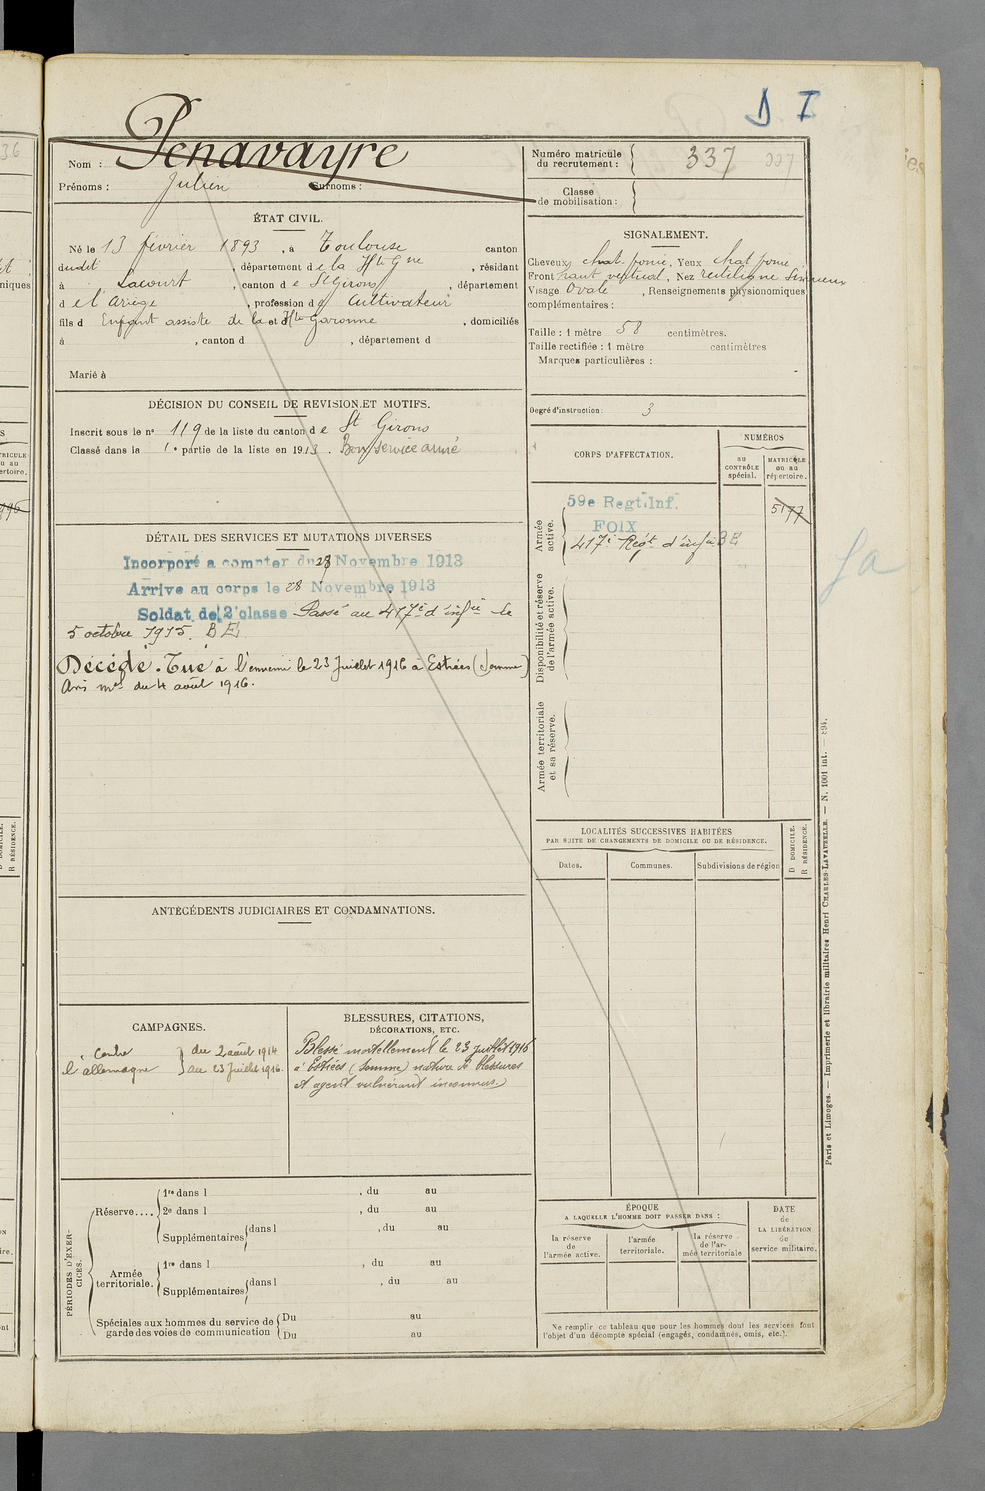 D I
Nom : Penavayre
Prénoms : Julien Surnoms :
Numéro matricule du recrutement : 337
Classe de mobilisation :
ÉTAT CIVIL.
Né le 13 février 1893, à Toulouse canton
dudit, département de la Hte Gne, résidant
à Lacourt, canton de St Girons, département
de l'Ariège, profession de Cultivateur
fils d Enfant assisté de la et Hte Garonne, domiciliés
à , canton d , département d
Marié à
SIGNALEMENT.
Cheveux chat. foncé, Yeux chat foncé
Front haut vertical, Nez rectiligne Sinueux
Visage Ovale, Renseignements physionomiques
complémentaires :
Taille : 1 mètre 58 centimètres.
Taille rectifiée : 1 mètre centimètres
Marques particulières :
Degré d'instruction : 3
DÉCISION DU CONSEIL DE REVISION ET MOTIFS.
Inscrit sous le n° 119 de la liste du canton de St Girons
Classé dans la 1e partie de la liste en 1913. Bon service armé
CORPS D'AFFECTATION.
NUMÉROS
au CONTRÔLE spécial.
MATRICULE ou au répertoire.
Armée active.
59e Regt. Inf.
FOIX
417e Regt d'infie BE
5177
Disponibilité et réserve de l'armée active.
Armée territoriale et sa réserve.
DÉTAIL DES SERVICES ET MUTATIONS DIVERSES
Incorporé a compter du 28 Novembre 1913
Arrive au corps le 28 Novembre 1913
Soldat de 2e classe Passé au 417e d'infie le
5 octobre 1915. BE
Décédé. Tué à l'ennemi le 23 Juillet 1916 à Estrées (Somme)
Avis mel du 4 août 1916.
LOCALITÉS SUCCESSIVES HABITÉES
PAR SUITE DE CHANGEMENTS DE DOMICILE OU DE RÉSIDENCE.
D DOMICILE.
R RÉSIDENCE.
Dates. Communes. Subdivisions de région
ANTÉCÉDENTS JUDICIAIRES ET CONDAMNATIONS.
CAMPAGNES.
Contre du 2 août 1914
l'allemagne au 23 Juillet 1916.
BLESSURES, CITATIONS,
DÉCORATIONS, ETC.
Blessé mortellement le 23 juillet 1916
à Estrées (Somme) nature de blessures
et agent vulnérant inconnus)
PÉRIODES D'EXERCICES.
Réserve.... 1re dans l , du au
2e dans l , du au
Supplémentaires dans l , du au
Armée territoriale. 1re dans l , du au
Supplémentaires dans l , du au
Spéciales aux hommes du service de garde des voies de communication Du au
Du au
ÉPOQUE
A LAQUELLE L'HOMME DOIT PASSER DANS :
la réserve de l'armée active.
l'armée territoriale.
la réserve de l'armée territoriale
DATE de LA LIBÉRATION du service militaire.
Ne remplir ce tableau que pour les hommes dont les services font
l'objet d'un décompte spécial (engagés, condamnés, omis, etc.).
Paris et Limoges. — Imprimerie et librairie militaires Henri CHARLES-LAVAUZELLE. — N. 1001 int. — 894.